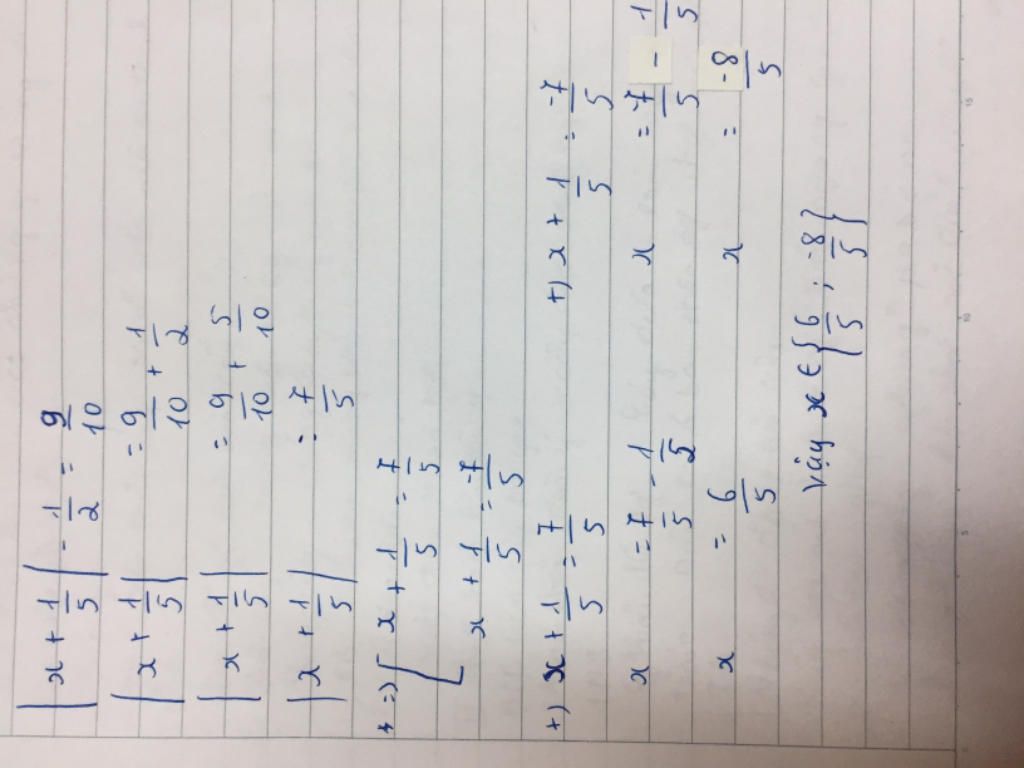 |x + 1/5| - 1/2 = 9/10
|x + 1/5| = 9/10 + 1/2
|x + 1/5| = 9/10 + 5/10
|x + 1/5| = 7/5
=> [ x + 1/5 = 7/5
x + 1/5 = -7/5
+) x + 1/5 = 7/5 +) x + 1/5 = -7/5
x = 7/5 - 1/5 x = -7/5 - 1/5
x = 6/5 x = -8/5
Vậy x ∈ {6/5 ; -8/5}